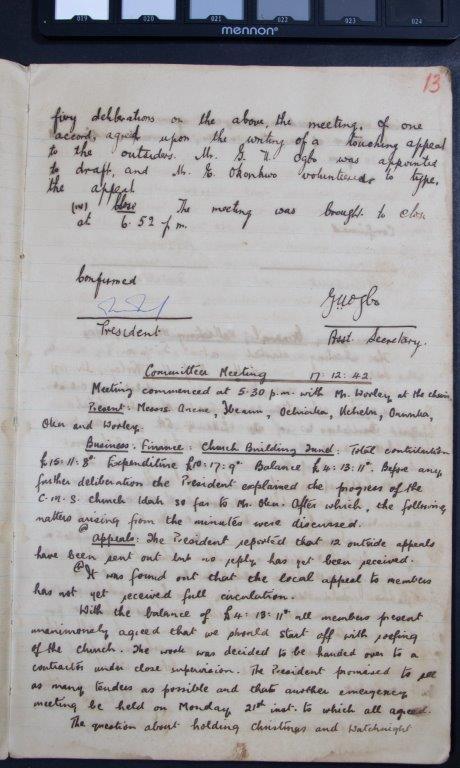 019 020 021 022 023 024
mennon
13
fiery deliberations on the above, the meeting, of one
accord, agreed upon the writing of a touching appeal
to the outsiders. Mr. G. U. Ogbo was appointed
to draft, and Mr. E. Okonkwo volunteered to type,
the appeal
(iv) Close The meeting was brought to close
at 6.52 p.m.
Confirmed
GUOgbo
President
Asst. Secretary.
Committee Meeting 17:12:42
Meeting commenced at 5.30 p.m. with Mr. Worley at the chair
Present: Messrs.
Oku and Worley.
Business: Finance: Church Building Fund: Total contribution
£15:11:8d Expenditure £10:17:9d Balance £4:13:11d. Before any
further deliberation the President explained the progress of the
C.M.S. Church Idah so far to Mr. Oku. After which, the following
matters arising from the minutes were discussed.
Appeals: The President reported that 12 outside appeals
have been sent out but no reply has yet been received.
It was found out that the local appeal to members
has not yet received full circulation.
With the balance of £4:13:11d all members present
unanimously agreed that we should start off with roofing
of the church. The work was decided to be handed over to a
contractor under close supervision. The President promised to see
as many tenders as possible and that another emergency
meeting be held on Monday 21st inst. to which all agreed.
The question about holding Christings and Watchnight